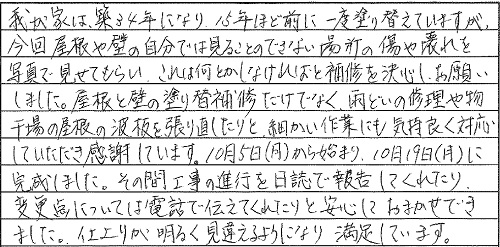 我が家は、築34年になり、15年ほど前に一度塗り替えていますが、
今回屋根や壁の自分では見ることのできない場所の傷や壊れを
写真で見せてもらい、これは何とかしなければと補修を決心し、お願い
しました。屋根と壁の塗り替補修だけでなく、雨どいの修理や物
干場の屋根の波板を張り直したりと、細かい作業にも気持良く対応
していただき感謝しています。10月5日(月)から始まり、10月19日(月)に
完成しました。その間工事の進行を日誌で報告してくれたり、
変更点については電話で伝えてくれたりと安心しておまかせでき
ました。仕上りが明るく見違えるようになり満足しています。